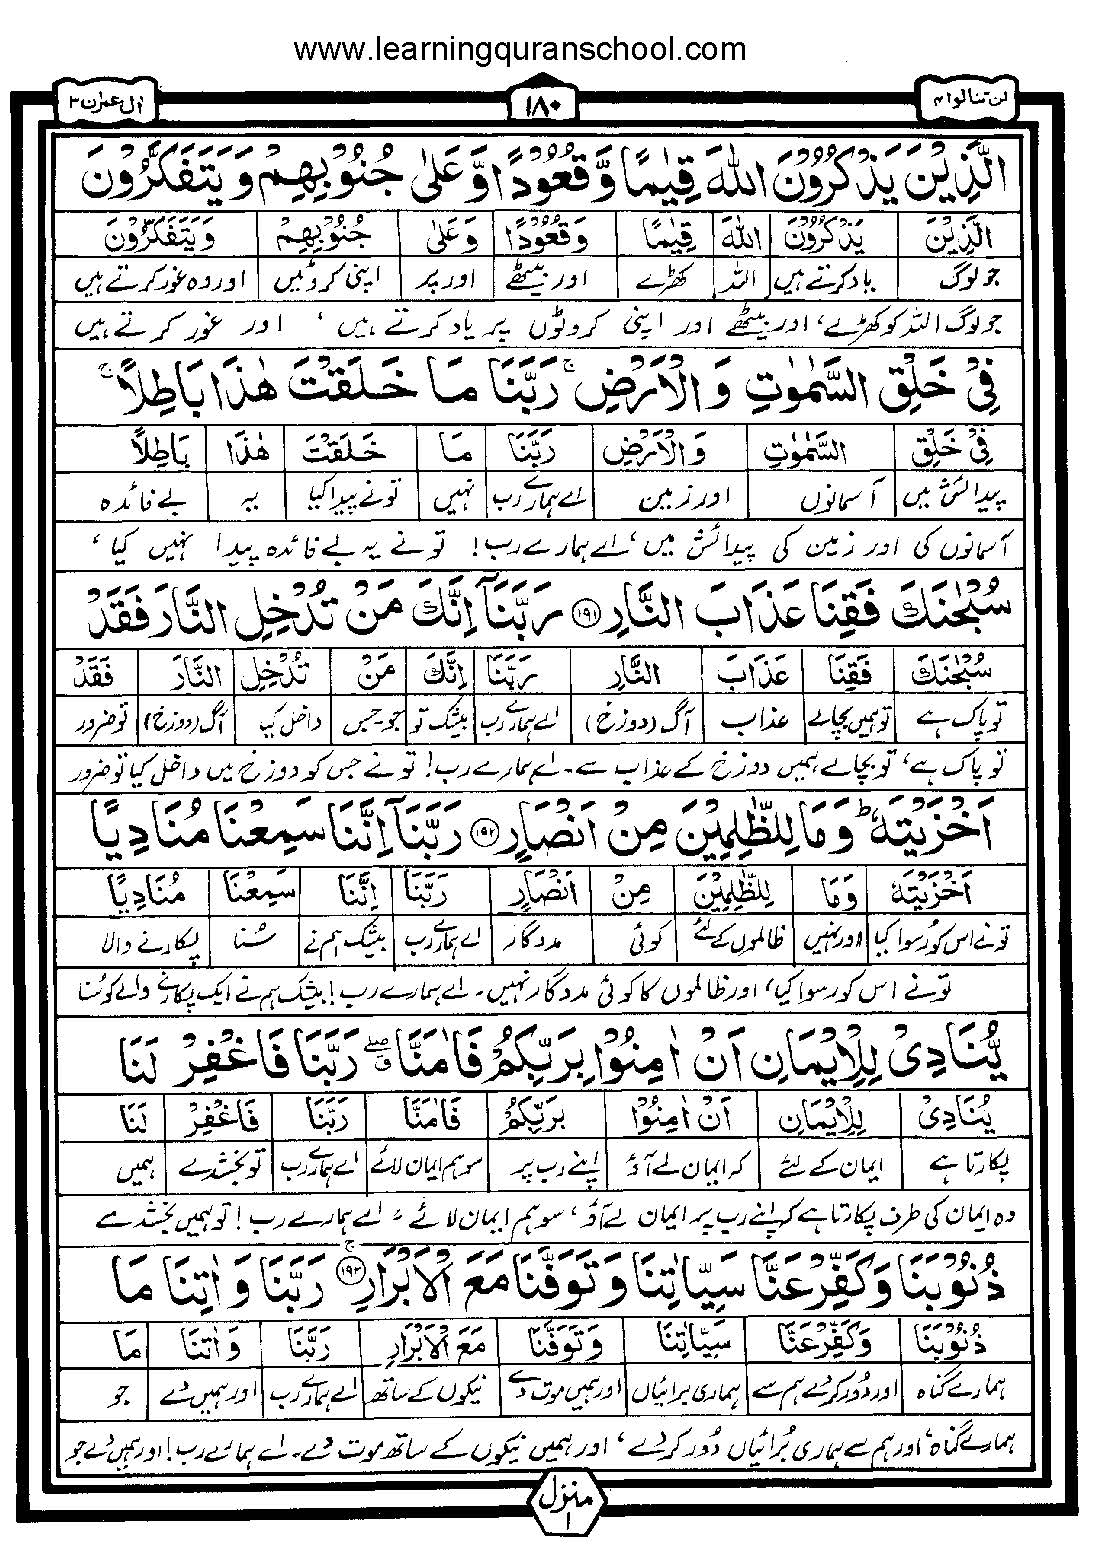 www.learningquranschool.com
لن تنالوا ۴ ۱۸۰ اٰل عمرٰن ۳
الَّذِیْنَ یَذْكُرُوْنَ اللّٰهَ قِیٰمًا وَّقُعُوْدًا وَّعَلٰى جُنُوْبِهِمْ وَیَتَفَكَّرُوْنَ
الَّذِیْنَ یَذْكُرُوْنَ اللّٰهَ قِیٰمًا وَّقُعُوْدًا وَّعَلٰى جُنُوْبِهِمْ وَیَتَفَكَّرُوْنَ
جو لوگ یاد کرتے ہیں اللہ کھڑے اور بیٹھے اور پر اپنی کروٹیں اور وہ غور کرتے ہیں
جو لوگ اللہ کو کھڑے، اور بیٹھے اور اپنی کروٹوں پر یاد کرتے ہیں، اور غور کرتے ہیں
فِیْ خَلْقِ السَّمٰوٰتِ وَالْاَرْضِ ۚ رَبَّنَا مَا خَلَقْتَ هٰذَا بَاطِلًا ۚ
فِیْ خَلْقِ السَّمٰوٰتِ وَالْاَرْضِ رَبَّنَا مَا خَلَقْتَ هٰذَا بَاطِلًا
پیدائش میں آسمانوں اور زمین اے ہمارے رب نہیں تو نے پیدا کیا یہ بے فائدہ
آسمانوں کی اور زمین کی پیدائش میں، اے ہمارے رب! تو نے یہ بے فائدہ پیدا نہیں کیا،
سُبْحٰنَكَ فَقِنَا عَذَابَ النَّارِ ۱۹۱ رَبَّنَاۤ اِنَّكَ مَنْ تُدْخِلِ النَّارَ فَقَدْ
سُبْحٰنَكَ فَقِنَا عَذَابَ النَّارِ رَبَّنَاۤ اِنَّكَ مَنْ تُدْخِلِ النَّارَ فَقَدْ
تو پاک ہے تو ہمیں بچالے عذاب آگ (دوزخ) اے ہمارے رب بیشک تو جو۔جس داخل کیا آگ (دوزخ) تو ضرور
تو پاک ہے، تو بچالے ہمیں دوزخ کے عذاب سے۔ اے ہمارے رب! تو نے جس کو دوزخ میں داخل کیا تو ضرور
اَخْزَیْتَهٗ ؕ وَمَا لِلظّٰلِمِیْنَ مِنْ اَنْصَارٍ ۱۹۲ رَبَّنَاۤ اِنَّنَا سَمِعْنَا مُنَادِیًا
اَخْزَیْتَهٗ وَمَا لِلظّٰلِمِیْنَ مِنْ اَنْصَارٍ رَبَّنَا اِنَّنَا سَمِعْنَا مُنَادِیًا
تو نے اس کو رسوا کیا اور نہیں ظالموں کے لئے کوئی مددگار اے ہمارے رب بیشک ہم نے سُنا پکارنے والا
تو نے اس کو رسوا کیا، اور ظالموں کا کوئی مددگار نہیں۔ اے ہمارے رب! بیشک ہم نے ایک پکارنے والے کو سُنا
یُّنَادِیْ لِلْاِیْمَانِ اَنْ اٰمِنُوْا بِرَبِّكُمْ فَاٰمَنَّا ۖۗ رَبَّنَا فَاغْفِرْ لَنَا
یُنَادِیْ لِلْاِیْمَانِ اَنْ اٰمِنُوْا بِرَبِّكُمْ فَاٰمَنَّا رَبَّنَا فَاغْفِرْ لَنَا
پکارتا ہے ایمان کے لئے کہ ایمان لے آؤ اپنے رب پر سو ہم ایمان لائے اے ہمارے رب تو بخشدے ہمیں
وہ ایمان کی طرف پکارتا ہے کہ اپنے رب پر ایمان لے آؤ، سو ہم ایمان لائے، اے ہمارے رب! تو ہمیں بخشدے
ذُنُوْبَنَا وَكَفِّرْ عَنَّا سَیِّاٰتِنَا وَتَوَفَّنَا مَعَ الْاَبْرَارِ ۚ ۱۹۳ رَبَّنَا وَاٰتِنَا مَا
ذُنُوْبَنَا وَكَفِّرْ عَنَّا سَیِّاٰتِنَا وَتَوَفَّنَا مَعَ الْاَبْرَارِ رَبَّنَا وَاٰتِنَا مَا
ہمارے گناہ اور دُور کر دے ہم سے ہماری برائیاں اور ہمیں موت دے نیکوں کے ساتھ اے ہمارے رب اور ہمیں دے جو
ہمارے گناہ، اور ہم سے ہماری بُرائیاں دُور کر دے، اور ہمیں نیکوں کے ساتھ موت دے۔ اے ہمارے رب! اور ہمیں دے جو
منزل ۱